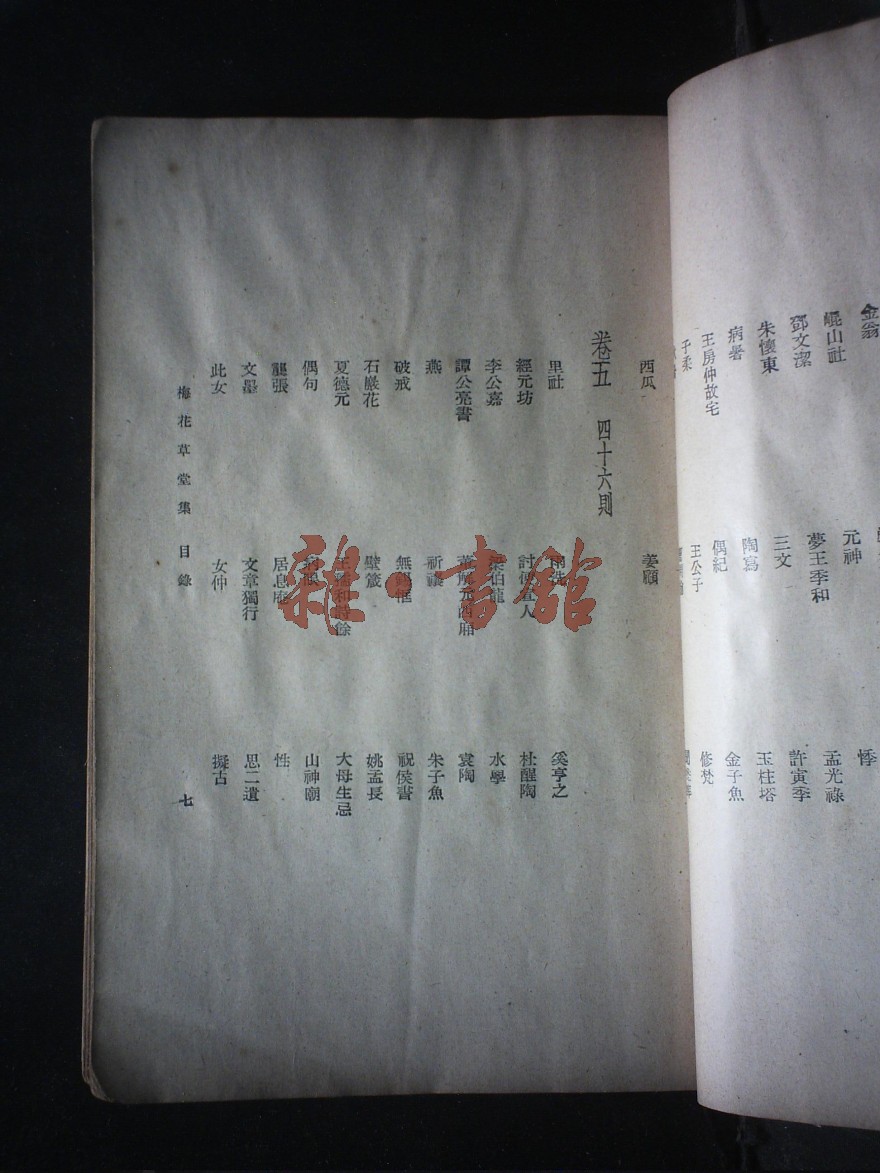 金翁
崐山社 孟光祿
鄧文潔 元神 許寅季
朱懷東 夢王季和 玉柱塔
病署 三文 金子魚
王房仲故宅 陶寫 修梵
子柔 偶紀
王公子
西瓜 姜顧
卷五 四十六則
里社 雨洗 奚亨之
經元坊 討便宜人 杜醒陶
李公嘉 梁伯龍 水學
譚公亮書 董解元西廂 袁陶
燕 祈禳 朱子魚
破戒 無錫伍 祝侯書
石巖花 壁箴 姚孟長
夏德元 王季和詩餘 大母生忌
偶句 病眼 山神廟
龔張 居息庵 性
文墨 文章獨行 思二遺
此女 女仲 擬古
梅花草堂集 目錄 七
雜·書館